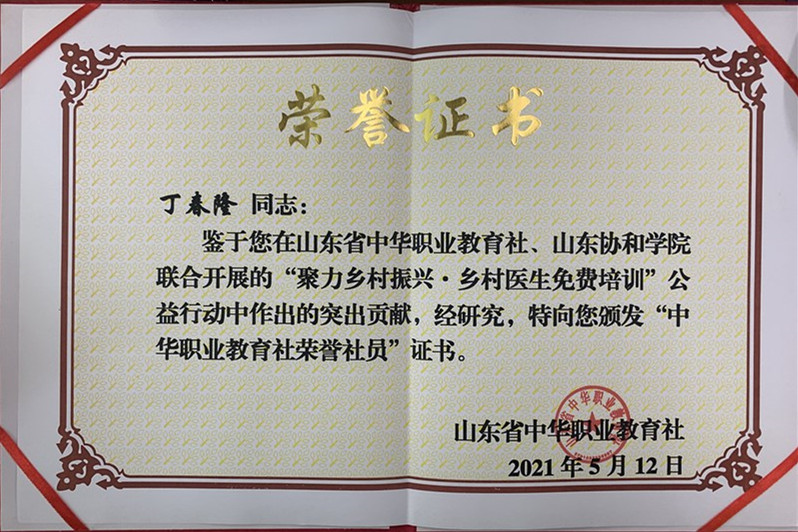 荣誉证书
丁春隆 同志：
鉴于您在山东省中华职业教育社、山东协和学院
联合开展的“聚力乡村振兴·乡村医生免费培训”公
益行动中作出的突出贡献，经研究，特向您颁发“中
华职业教育社荣誉社员”证书。
山东省中华职业教育社
2021年5月12日